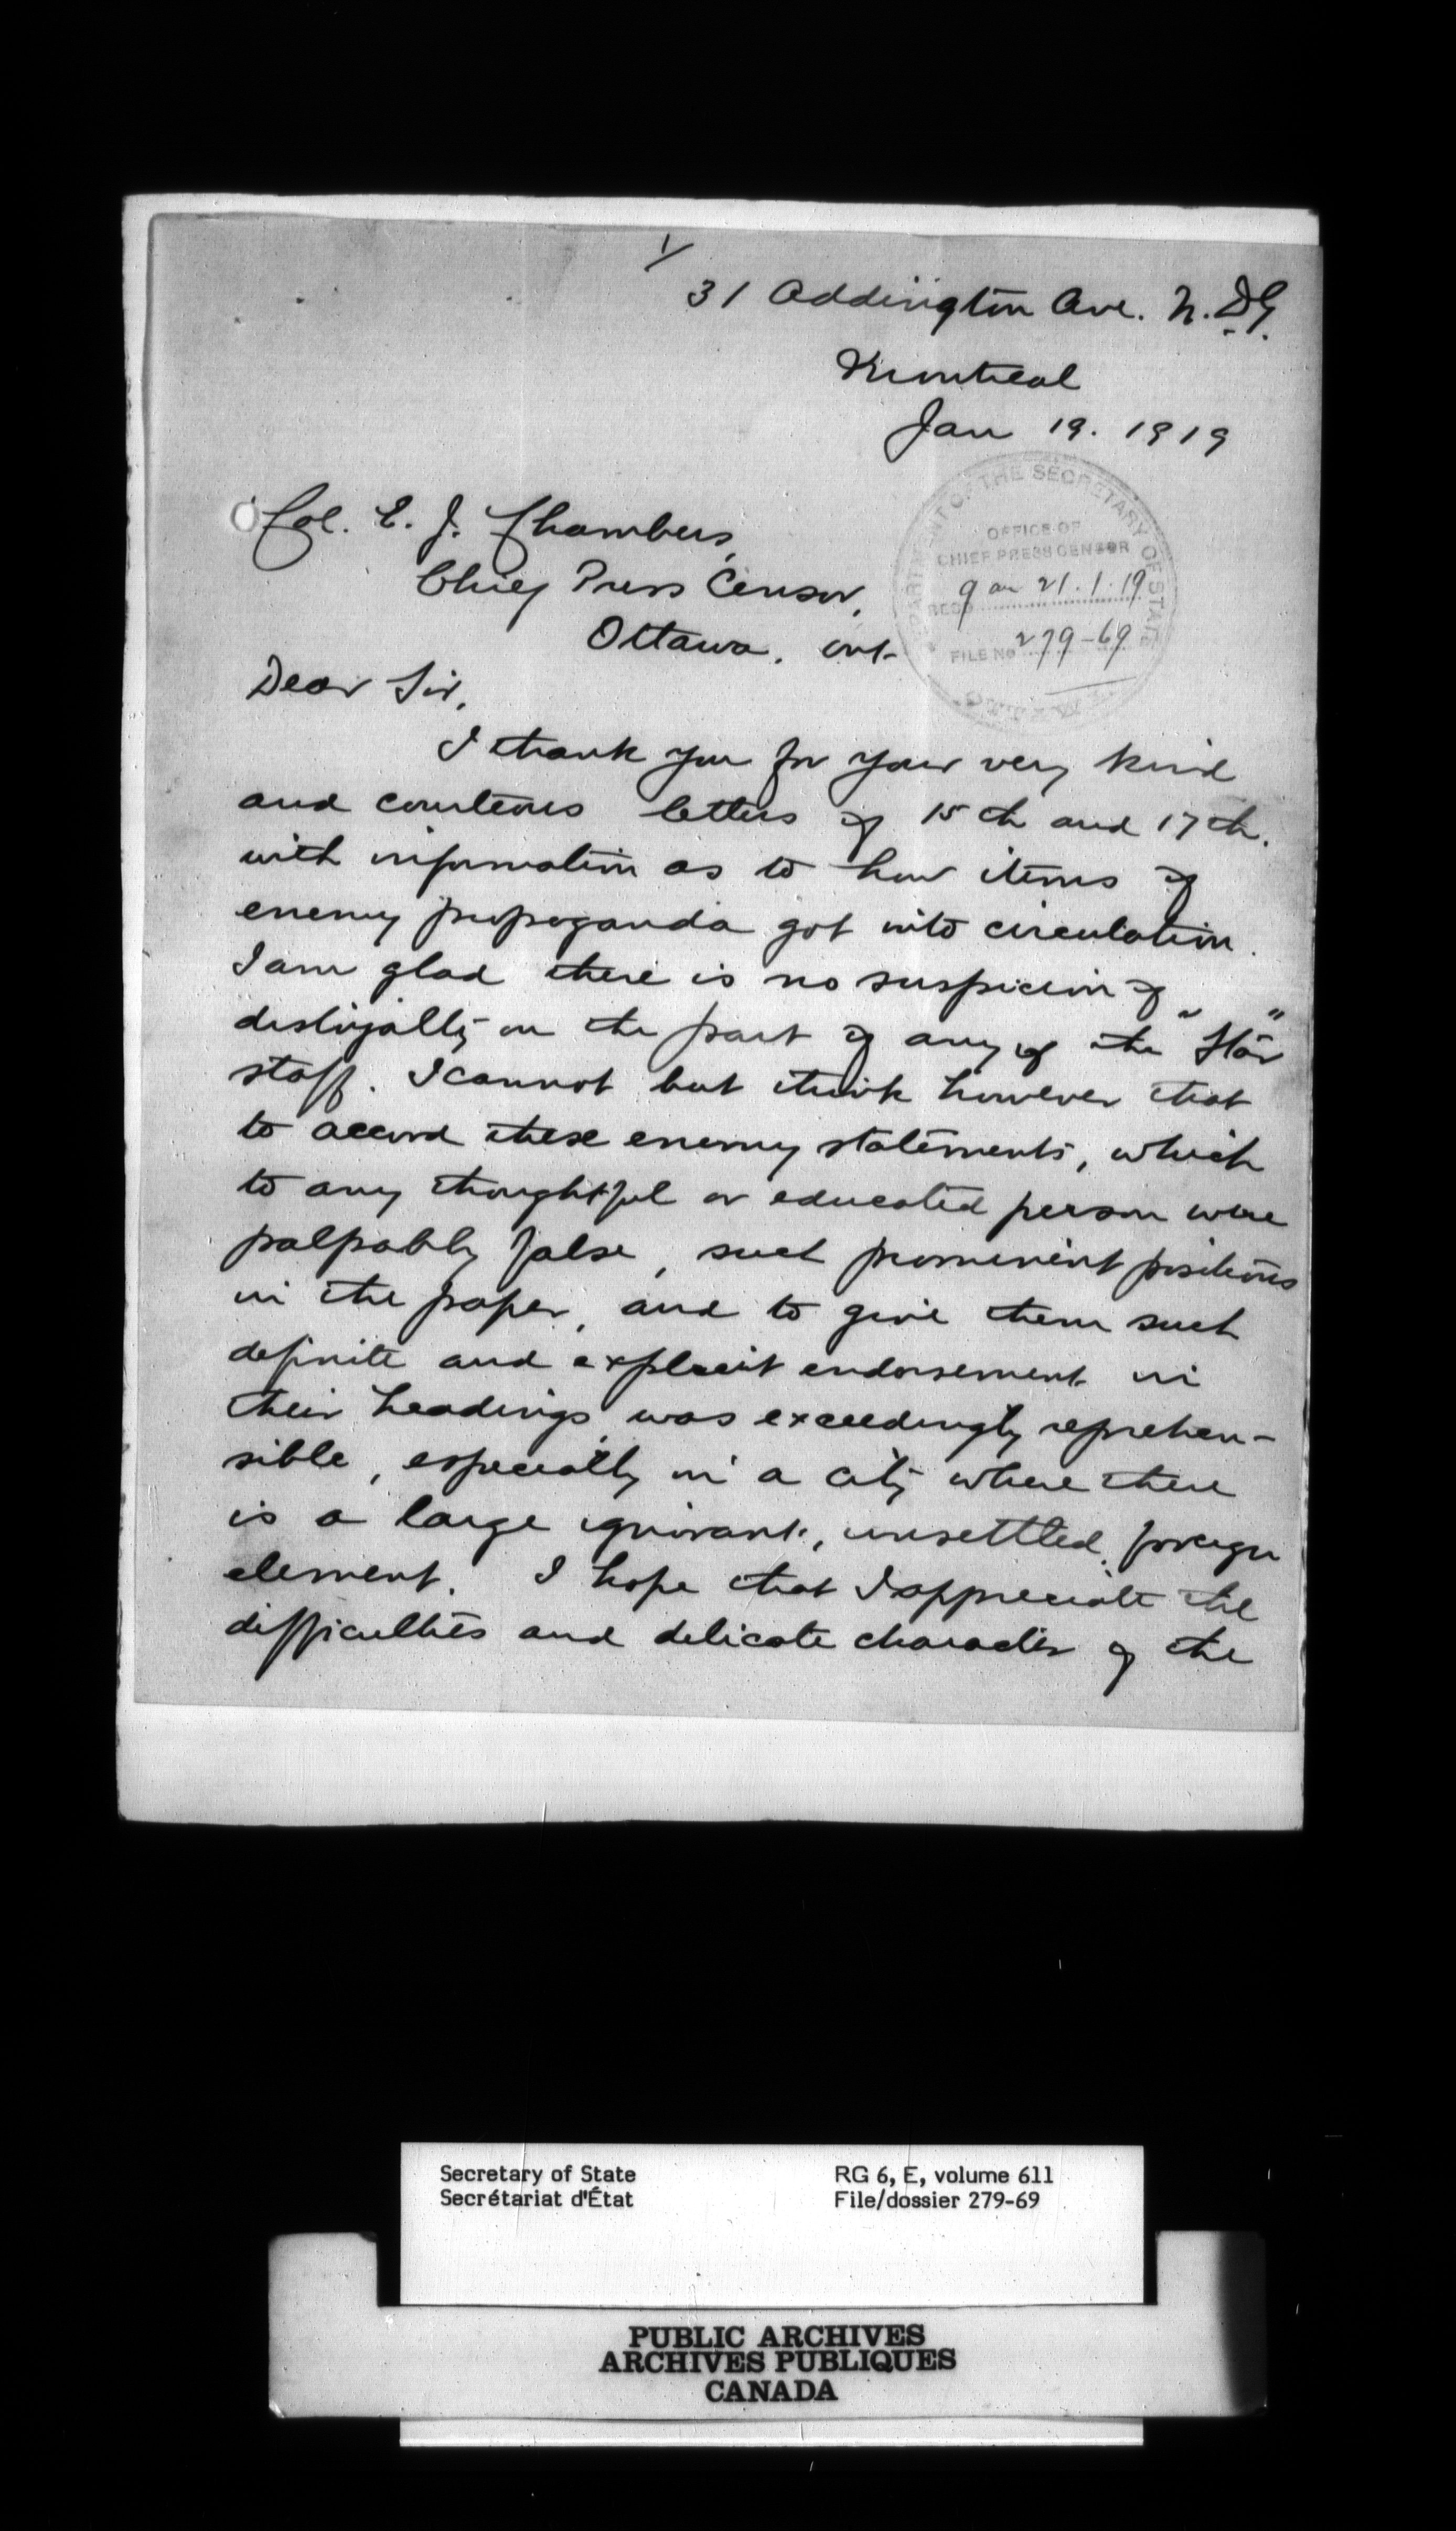 1/
31 Addington Ave. N.D.G.
Montreal
Jan 19. 1919
Col. E. J. Chambers,
Chief Press Censor,
Ottawa. Ont.
DEPARTMENT OF THE SECRETARY OF STATE
OFFICE OF
CHIEF PRESS CENSOR
RECD 9 am 21.1.19
FILE No 279-69
OTTAWA
Dear Sir,
I thank you for your very kind
and courteous letters of 15th and 17th.
with information as to how items of
enemy propaganda got into circulation.
I am glad there is no suspicion of
disloyalty on the part of any of the "Star"
staff. I cannot but think however that
to accord these enemy statements, which
to any thoughtful or educated person were
palpably false, such prominent positions
in the paper, and to give them such
definite and explicit endorsement in
their headings was exceedingly reprehen-
sible, especially in a city where there
is a large ignorant, unsettled, foreign
element. I hope that I appreciate the
difficulties and delicate character of the
Secretary of State RG 6, E, volume 611
Secrétariat d'État File/dossier 279-69
PUBLIC ARCHIVES
ARCHIVES PUBLIQUES
CANADA